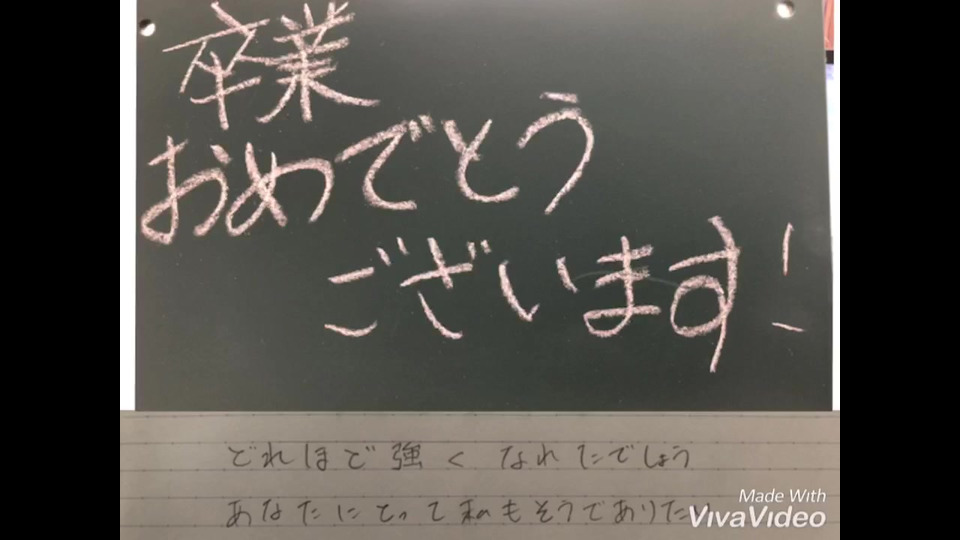 卒業
おめでとう
ございます!
どれほど強くなれたでしょう
あなたにとって私もそうでありたい
Made With
VivaVideo